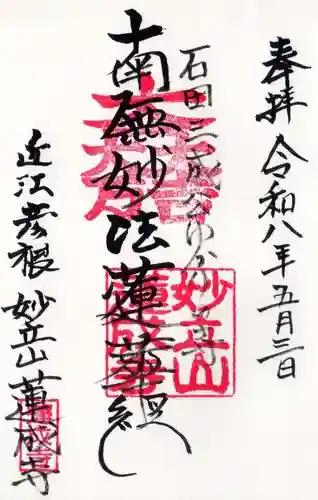 奉拝 令和八年五月三日
石田三成公ゆかりの寺
南無妙法蓮華経
妙立山
近江彦根 妙立山 蓮成寺